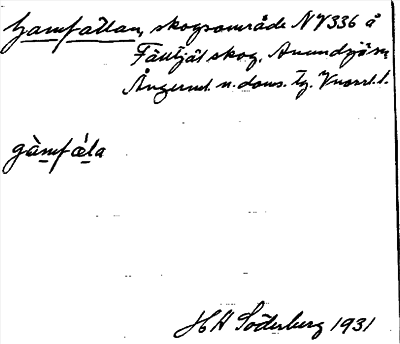 Gamfällan, skogsområde NV336 å
Fälltjäl skog, Anundsjö sn,
Ångerml. n. doms. tg. Vnorrl. l.
gàmfǽla
HH Söderberg 1931